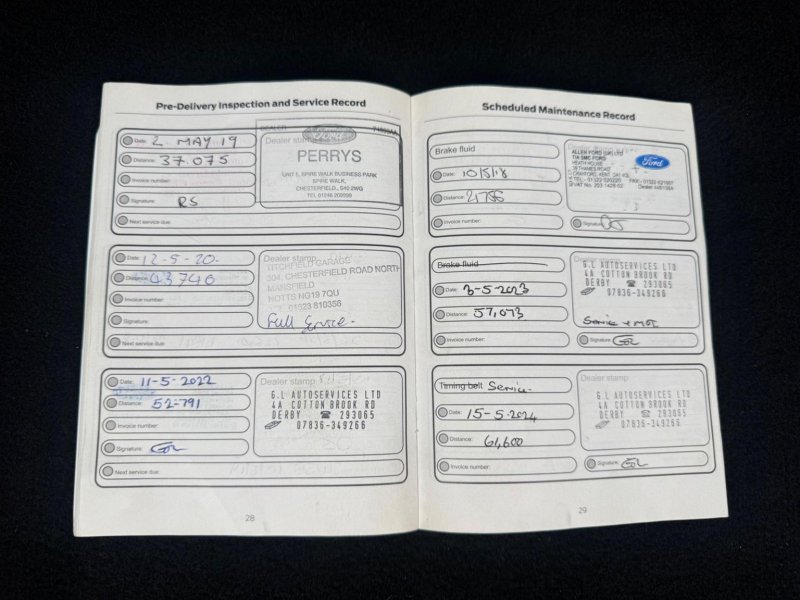 Pre-Delivery Inspection and Service Record
Date: 2 MAY 19
Distance: 37.075
Invoice number:
Signature: RS
Next service due:
DEALER
Dealer stamp
Ford
PERRYS
UNIT 5, SPIRE WALK BUSINESS PARK
SPIRE WALK,
CHESTERFIELD, S40 2WG
Date: 12-5-20.
Distance: 43746
Invoice number:
Signature:
Next service due
Dealer stamp
LITCHFIELD GARAGE
304, CHESTERFIELD ROAD NORTH
MANSFIELD
NOTTS NG19 7QU
01623 810356
Full Service.
Date: 11-5-2022
Distance: 52-791
Invoice number:
Signature: GL
Next service due:
Dealer stamp
G.L AUTOSERVICES LTD
4A COTTON BROOK RD
DERBY ☎ 293065
07836-349266
28
Scheduled Maintenance Record
Brake fluid
Date: 10/5/18
Distance: 21786
Invoice number:
ALLEN FORD (UK) LTD
T/A SMC FORD
HEATH HOUSE
Ford
Signature:
Brake fluid
Date: 3-5-2023
Distance: 57,073
Invoice number:
G.L AUTOSERVICES LTD
4A COTTON BROOK RD
DERBY ☎ 293065
07836-349266
Service + MOT
Signature: GL
Timing belt Service.
Date: 15-5-2024
Distance: 61,600
Invoice number:
Dealer stamp
G.L AUTOSERVICES LTD
4A COTTON BROOK RD
DERBY ☎ 293065
07836-349266
Signature: GL
29